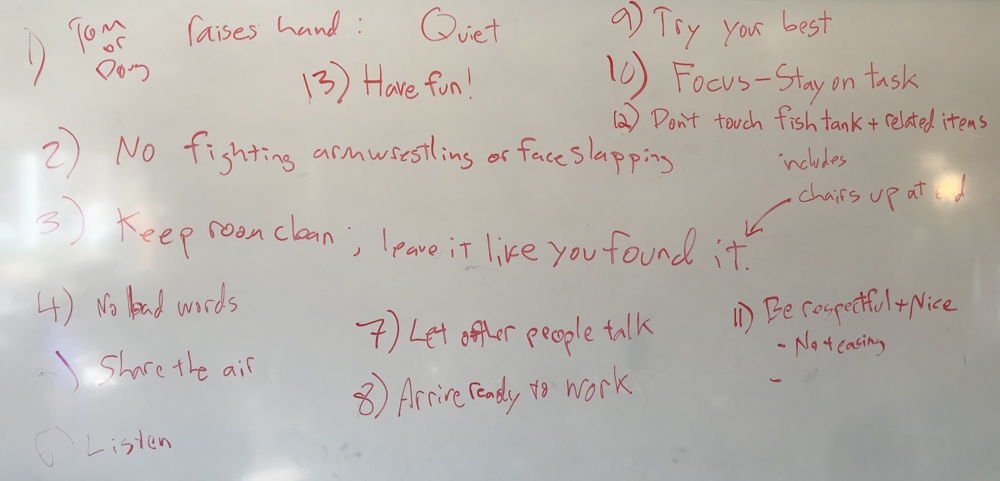 1) Tom or Doug raises hand: Quiet
13) Have fun!
2) No fighting armwrestling or face slapping
3) Keep room clean; leave it like you found it.
includes
chairs up at end
4) No bad words
) Share the air
6) Listen
7) Let other people talk
8) Arrive ready to work
9) Try your best
10) Focus - Stay on task
12) Don't touch fish tank + related items
11) Be respectful + Nice
- No teasing
-